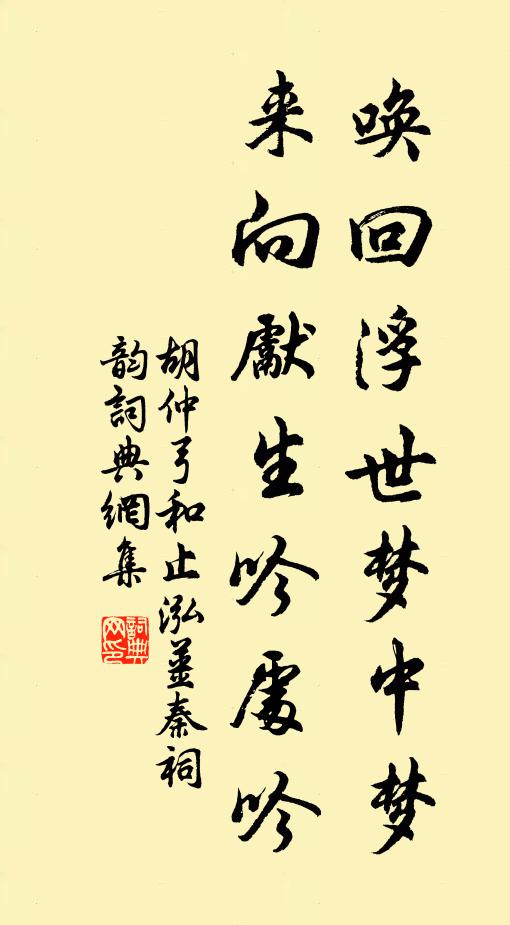 唤回浮世梦中梦
来向獻生吟處吟
胡仲弓和止泓荎秦祠
韵詞典網集
詞典
网印